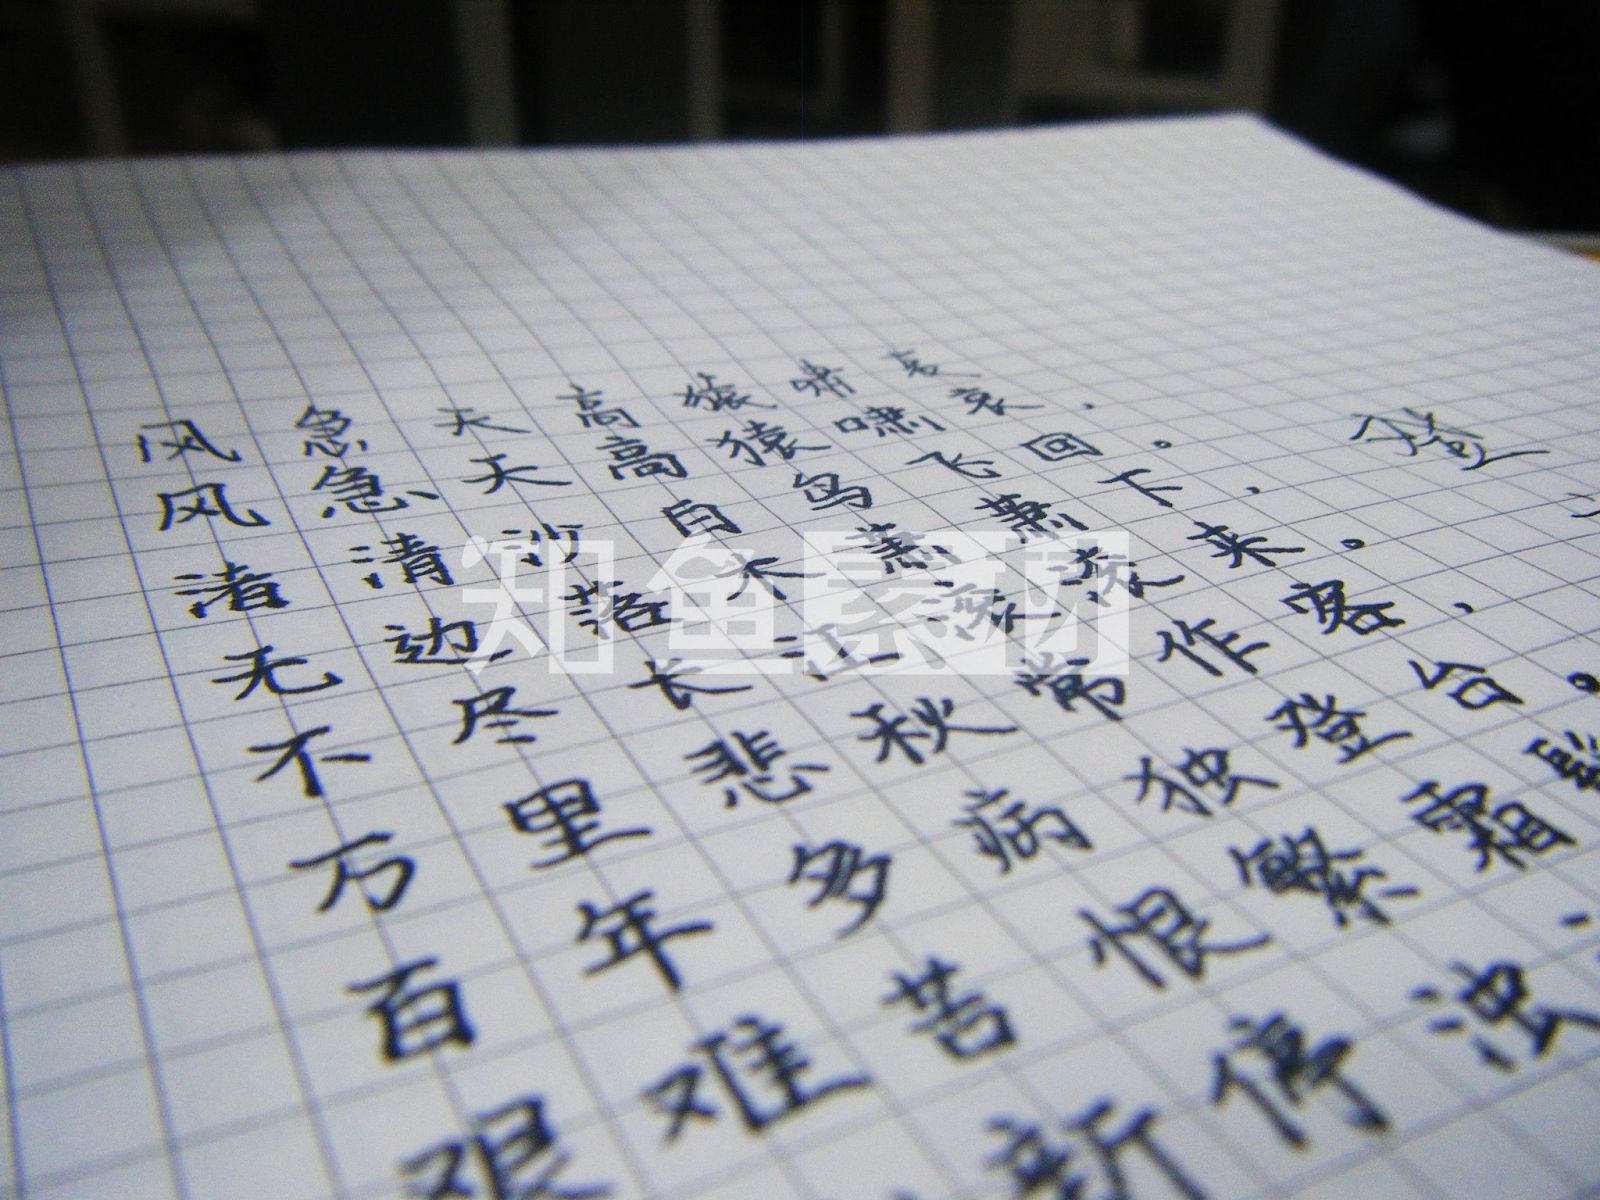 风急天高猿啸哀
风急天高猿啸哀，
渚清沙白鸟飞回。
无边落木萧萧下，
不尽长江滚滚来。
万里悲秋常作客，
百年多病独登台。
艰难苦恨繁霜鬓
新停浊
登
知鱼素材